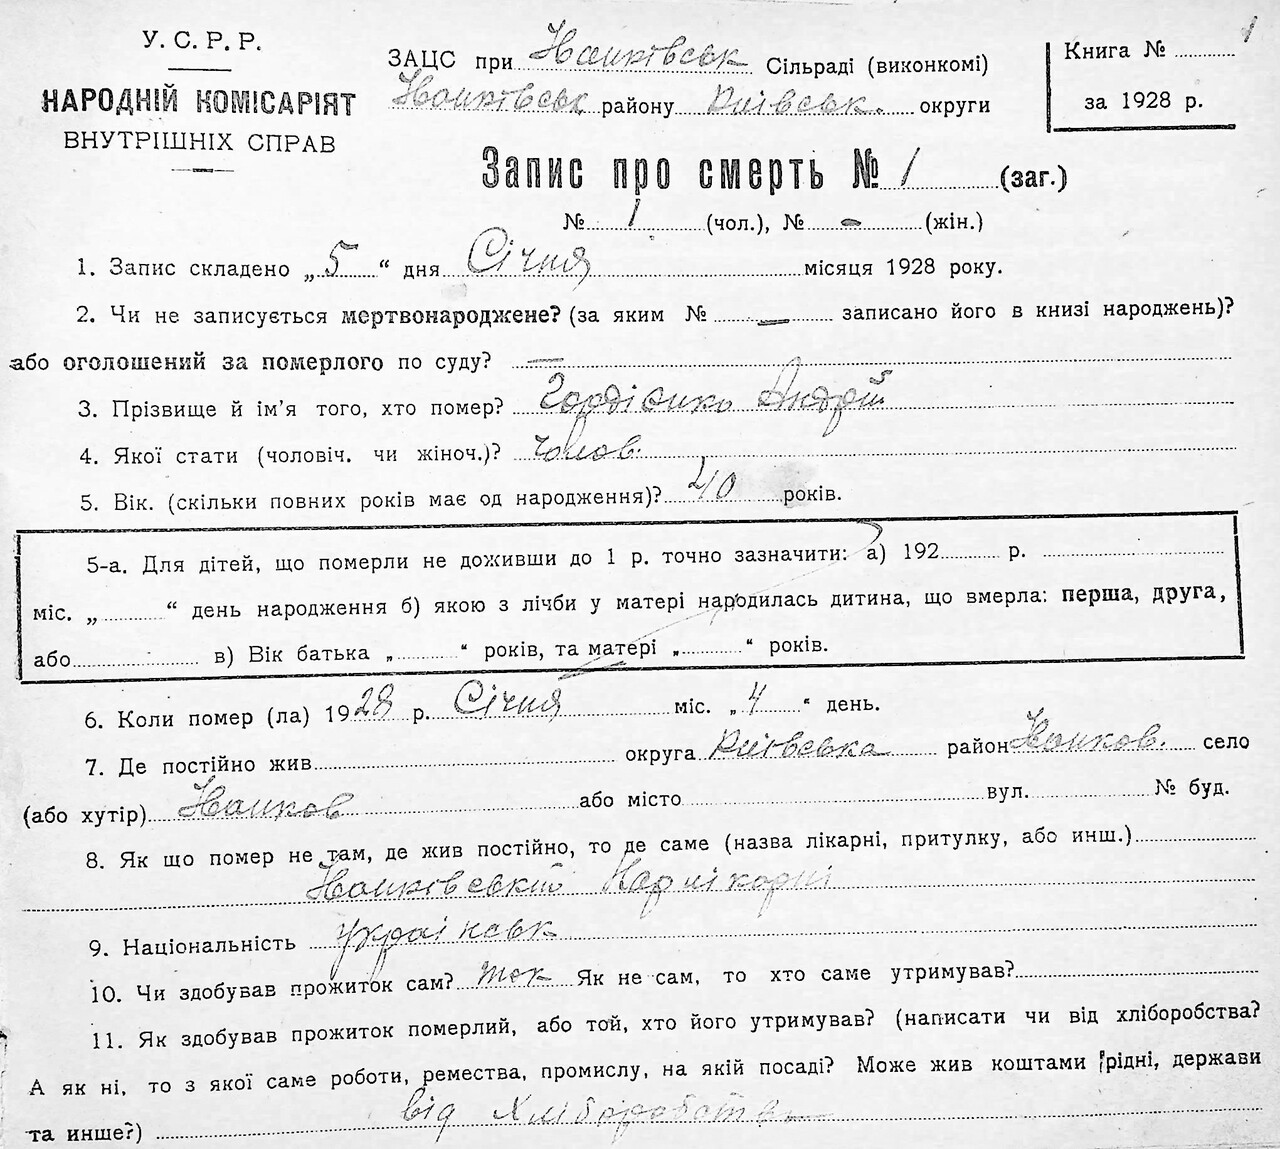 У. С. Р. Р.
НАРОДНІЙ КОМІСАРІЯТ
ВНУТРІШНІХ СПРАВ
ЗАЦС при Іванківськ Сільраді (виконкомі)
Іванківськ району Київськ. округи
Книга №
1
за 1928 р.
Запис про смерть № 1 (заг.)
№ 1 (чол.), № - (жін.)
1. Запис складено „ 5 “ дня Січня місяця 1928 року.
2. Чи не записується мертвонароджене? (за яким № — записано його в книзі народжень)?
або оголошений за померлого по суду? —
3. Прізвище й ім'я того, хто помер? Гордієнко Андрій
4. Якої стати (чоловіч. чи жіноч.)? Чолов.
5. Вік. (скільки повних років має од народження)? 40 років.
5-а. Для дітей, що померли не доживши до 1 р. точно зазначити: а) 192 р.
міс. „ “ день народження б) якою з лічби у матері народилась дитина, що вмерла: перша, друга,
або в) Вік батька „ “ років, та матері „ “ років.
6. Коли помер (ла) 1928 р. Січня міс. „ 4 “ день.
7. Де постійно жив округа Київська район Іванков. село
(або хутір) Іванков або місто вул. № буд.
8. Як що помер не там, де жив постійно, то де саме (назва лікарні, притулку, або инш.)
Іванківський Нарлікарні
9. Національність українськ
10. Чи здобував прожиток сам? так Як не сам, то хто саме утримував?
11. Як здобував прожиток померлий, або той, хто його утримував? (написати чи від хліборобства?
А як ні, то з якої саме роботи, ремества, промислу, на якій посаді? Може жив коштами рідні, держави
та инше?) від хліборобства